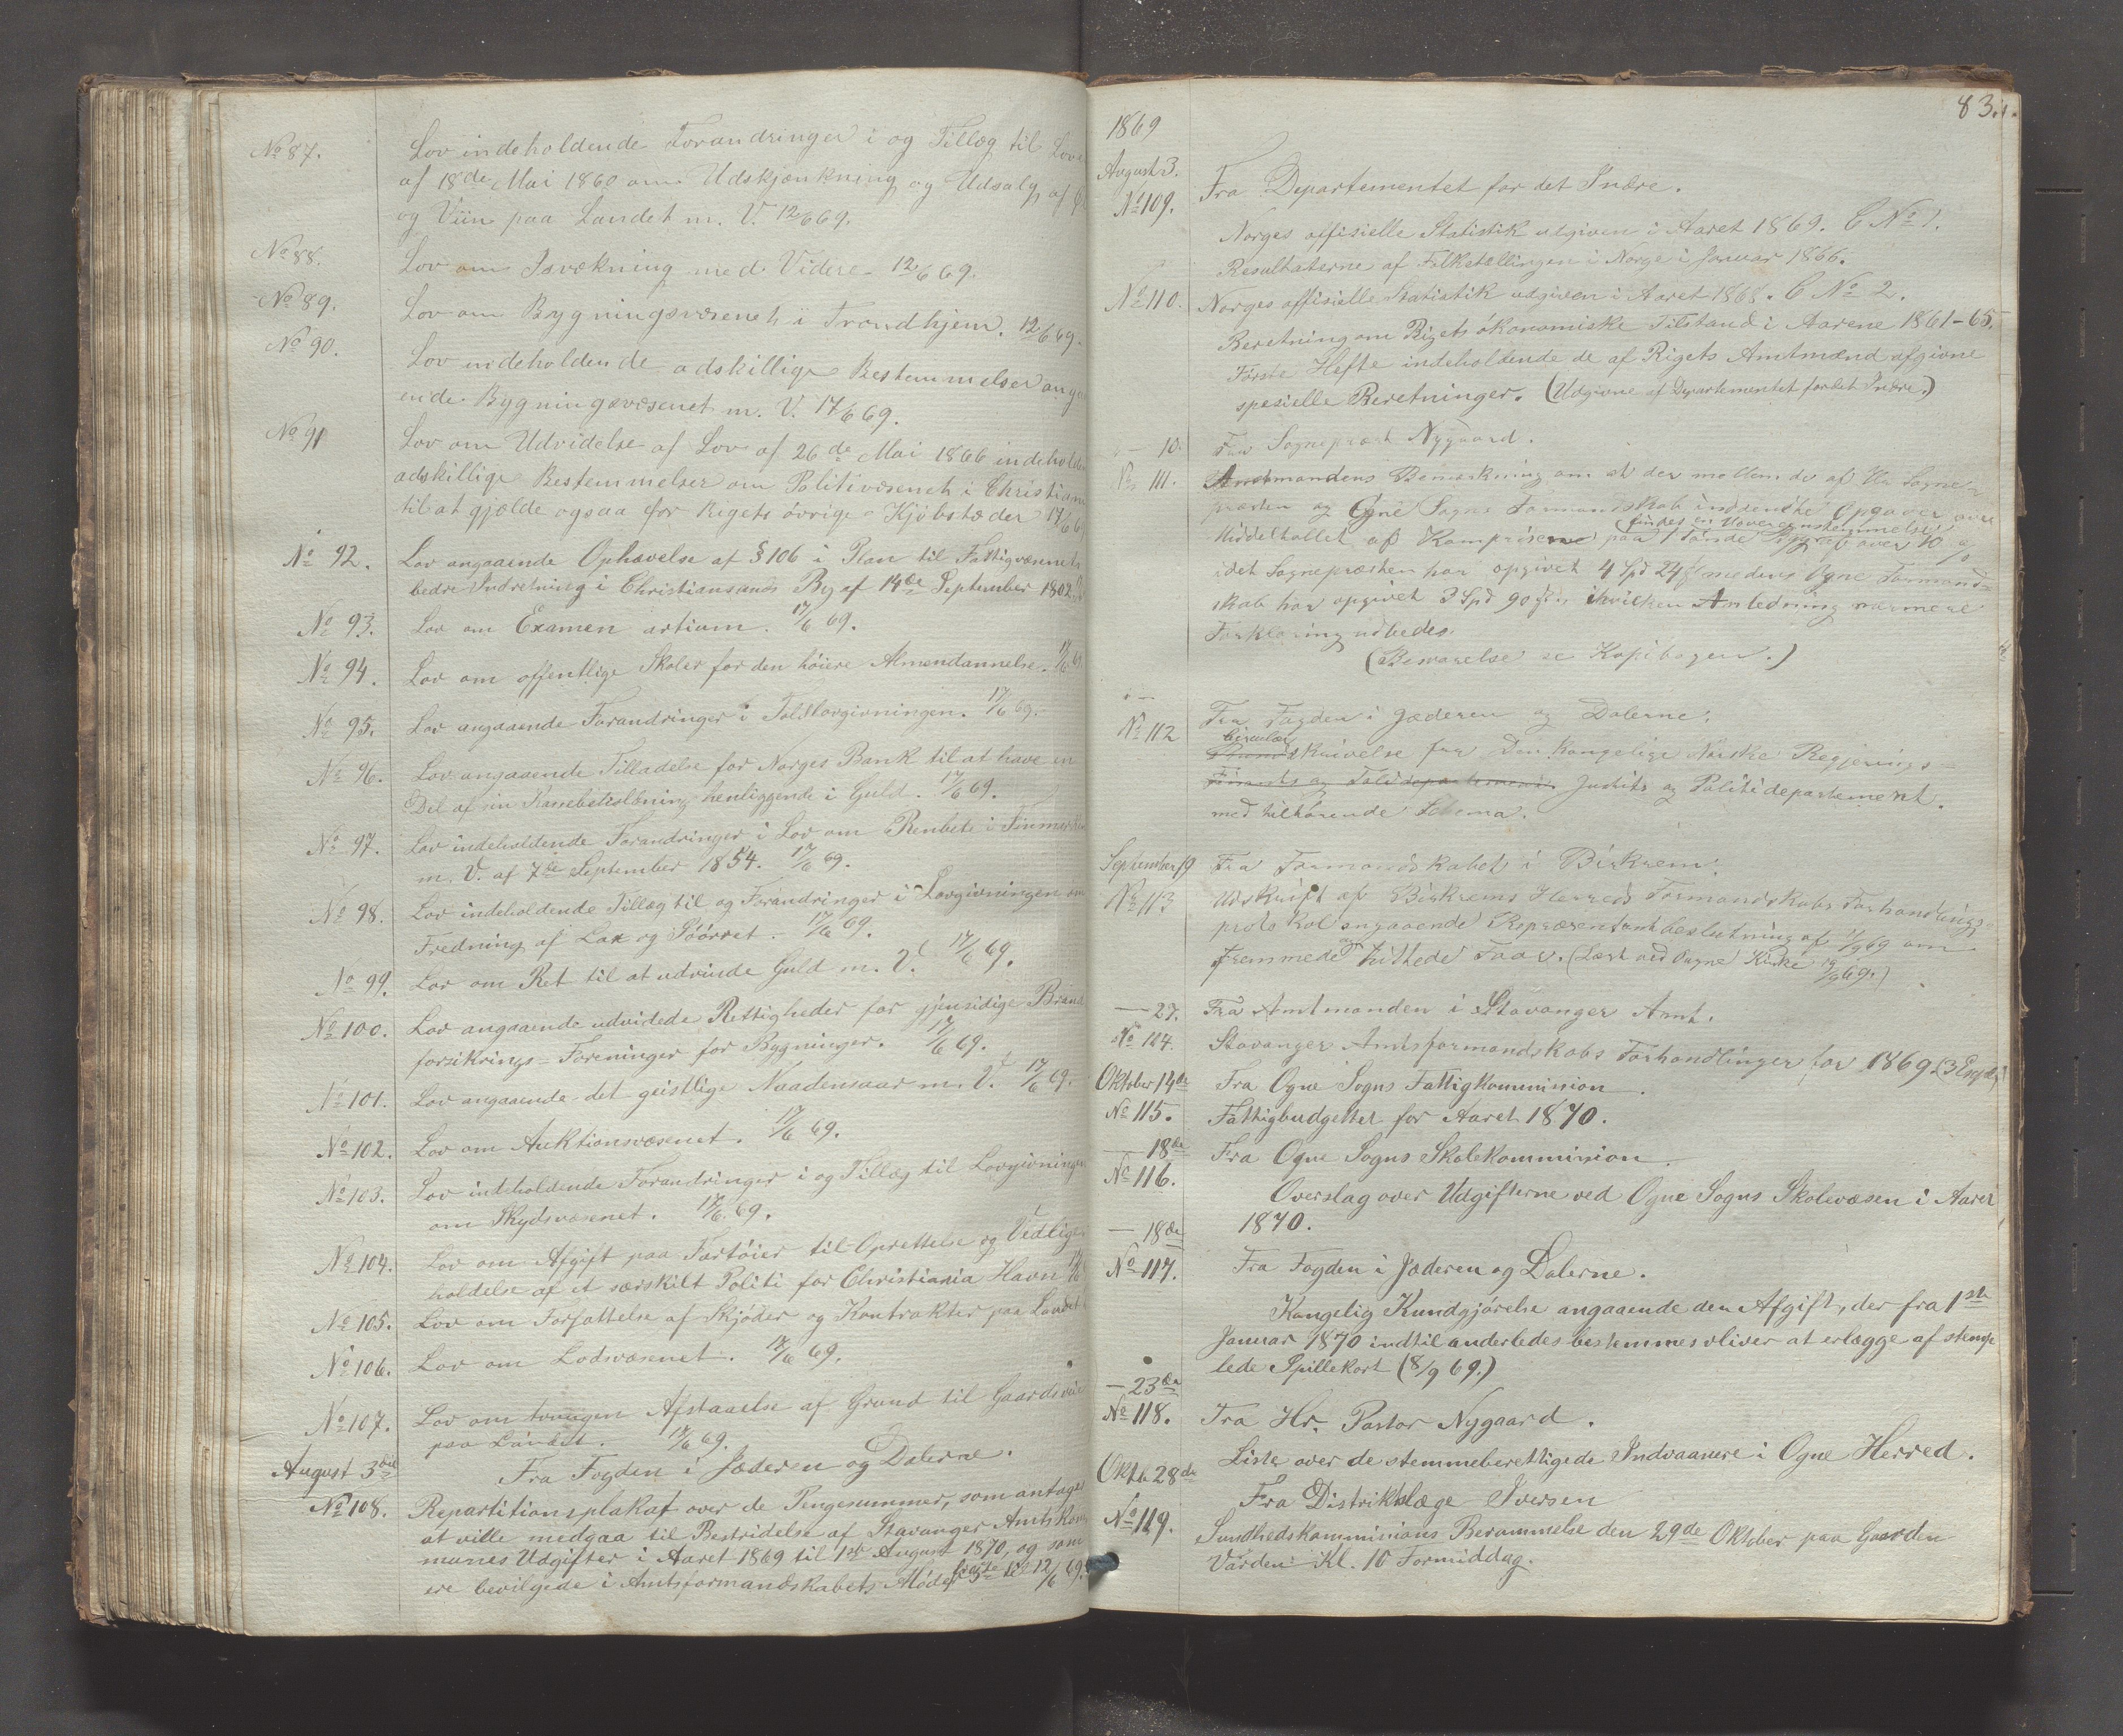 No 87. Lov indeholdende Forandringer i og Tillæg til Love
af 18de Mai 1860 om Udskjænkning og Udsalg af
og Viin paa Landet m. V. 12/6 69.
No 88. Lov om med Videre. 12/6 69.
No 89. Lov om Bygningsvæsenet i Trondhjem. 12/6 69.
No 90. Lov indeholdende adskillige Bestemmelser anga
ende Bygningsvæsenet m. V. 17/6 69.
No 91 Lov om Udvidelse af Lov af 26de Mai 1866 indehold
adskillige Bestemmelser om Politivæsenet i Christian
til at gjælde ogsaa for Rigets övrige Kjöbstæder 17/6 6
No 92. Lov angaaende Ophævelse af § 106 i Plan til Fattigvæsenets
bedre Indretning i Christiansands By af 14de September 1802.
No 93. Lov om Examen artium. 17/6 69.
No 94. Lov om offentlige Skoler for den höiere Almendannelse. 17/6 69
No 95. Lov angaaende Forandringer i Toldlovgivningen. 17/6 69.
No 96. Lov angaaende Tilladelse for Norges Bank til at have en
Del af sin henliggende i Guld. 17/6 69.
No 97. Lov indeholdende Forandringer i Lov om Renbete i Finmarken
m. V. af 7de September 1854. 17/6 69.
No 98. Lov indeholdende Tillæg til og Forandringer i Lovgivningen om
Fredning af Lax og Söörret. 17/6 69.
No 99. Lov om Ret til at udvinde Guld m. V. 17/6 69.
No 100. Lov angaaende udvidede Rettigheder for gjensidige Brand
forsikrings=Foreninger for Bygninger. 17/6 69.
No 101. Lov angaaende det geistlige Naadensaar m. V. 17/6 69.
No 102. Lov om Auktionsvæsenet. 17/6 69.
No 103. Lov indeholdende Forandringer i og Tillæg til Lovgivningen
om Skydsvæsenet. 17/6 69.
No 104. Lov om Afgift paa Fartöier til Oprettelse og Vedlige
holdelse af et særskilt Politi for Christiania Havn 17/6
No 105. Lov om Forfattelse af Skjöder og Kontrakter paa Landet
No 106. Lov om Lodsvæsenet. 17/6 69.
No 107. Lov om tvungen Afstaaelse af Grund til Gaardsveie
paa Landet. 17/6 69.
August 3die Fra Fogden i Jæderen og Dalerne.
No 108. Repartitionsplakat over de Pengesummer, som antages
at ville medgaa til Bestridelse af Stavanger Amtskom
munes Udgifter i Aaret 1869 til 1ste August 1870, og som
ere bevilgede i Amtsformandskabets Möde til 12/6 69.
83.
1869
August 3. Fra Departementet for det Indre.
No 109. Norges offisielle Statistik udgiven i Aaret 1869. C No 1.
Resultaterne af Folketællingen i Norge i Januar 1866.
No 110. Norges offisielle Statistik udgiven i Aaret 1868. C No 2.
Beretning om Rigets ökonomiske Tilstand i Aarene 1861-65.
Förste Hefte indeholdende de af Rigets Amtmænd afgivne
spesielle Beretninger. (Udgivne af Departementet for det Indre.)
— 10. Fra Sognepræst Nygaard.
No 111. Amtmandens Bemærkning om at der mellem de af Hr Sogne=
præsten og Ogne Sogns Formandskab indsendte Opgaver over
findes en Uoverensstemmelse
Middeltallet af Kornpriserne paa 1 Tönde Byg af over 10
idet Sognepræsten har opgivet 4 Spd 24 medens Ogne Formand=
skab har opgivet 3 Spd 90 , i hvilken Anledning nærmere
Forklaring udbedes.
(Besvarelse se Kopibogen.)
No 112 Fra Fogden i Jæderen og Dalerne.
Circulær
skrivelse fra Den Kongelige Norske Regjerings=
Finants og Tolddepartement. Justits og Politidepartement.
med tilhörende Schema.
September 19 Fra Formandskabet i Birkrem.
No 113. Udskrift af Birkrems Herreds Formandskabs Forhandlings=
protokol angaaende Repræsentantbeslutning af /9 69 om
Fremmede Faar. (Læst ved Ougne Kirke 19/9 69.)
— 27. Fra Amtmanden i Stavanger Amt.
No 114. Stavanger Amtsformandskabs Forhandlinger for 1869.
Oktober 14de Fra Ogne Sogns Fattigkommission.
No 115. Fattigbudgettet for Aaret 1870.
— 18de Fra Ogne Sogns Skolekommission.
No 116. Overslag over Udgifterne ved Ogne Sogns Skolevæsen i Aaret
1870.
— 18de
No 117. Fra Fogden i Jæderen og Dalerne.
Kongelig Kundgjörelse angaaende den Afgift, der fra 1ste
Januar 1870 indtil anderledes bestemmes bliver at erlægge af stemp
lede Spillekort (8/9 69.)
— 23de
No 118. Fra Hr. Pastor Nygaard.
Liste over de stemmeberettigede Indvaanere i Ogne Herred.
Oktb 28de Fra Distriktslæge Iversen
No 119. Sundhedskommissions Berammelse den 29de Oktober paa Gaarden
Varden Kl. 10 Formiddag.